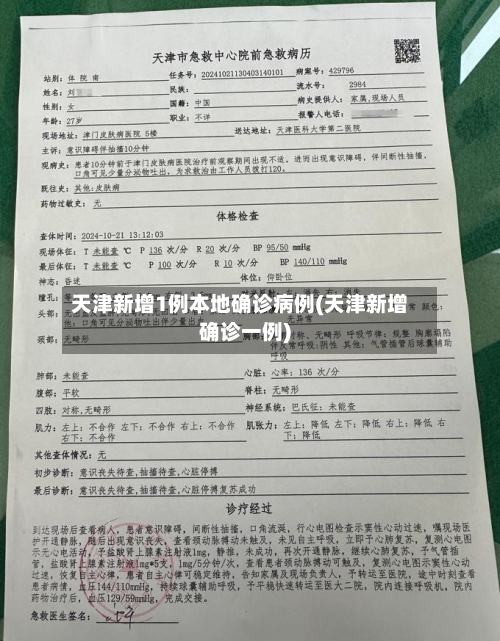 天津市急救中心院前急救病历
站别：体 院 南 任务号：20241021130403140101 病案号：429796
姓名：刘 民族： 流水号： 2984
性别：女 国籍：中国 病史提供人：家属,现场人员
年龄：27岁 职业：不详 报警人电话：
现场地址：津门皮肤病医院 5楼 送达地址：天津医科大学第二医院
主诉：意识障碍伴抽搐10分钟
现病史：患者10分钟前于津门皮肤病医院治疗前观察期间出现不适，进而出现意识障碍，伴间断性抽搐，
口角可见少量分泌物吐出，为求救治由工作人员拨打120。
既往史：其他:皮肤病
药物过敏史：无
体格检查
查体时间：2024-10-21 13:12:03
现场体征： T 未能查 ℃ P 136 次/分 R 20 次/分 BP 95/50 mmHg
最后体征： T 未能查 ℃ P 100 次/分 R 10 次/分 BP 140/110 mmHg
神志：昏迷 体位：仰卧位
天津新增1例本地确诊病例(天津新增
确诊一例)
颈部：无畸形
肺部：未能查 心脏：心率：136 次/分
腹部：平软 脊柱：无畸形
四肢：对称,无畸形 神经系统：巴氏征：未能查
肌力：左上：不合作 左下：不合作 右上：不合作 肌张力：左上：降低 左下：降低 右上：降低 右
右下：不合作 下：降低
其他查体情况：无
初步诊断：意识丧失待查,抽搐待查,心脏停搏
最后诊断：意识丧失待查,抽搐待查,心脏停搏复苏成功
诊疗经过
到达现场后查看病人，患者意识障碍，间断性抽搐，口角流涎，行心电图检查示窦性心动过速，嘱现场医
护开通静脉，随后出现意识丧失，查看颈动脉搏动未触及，未见自主呼吸，立即予心肺复苏，复测心电图
示无心电活动，予盐酸肾上腺素注射液1mg，静推，未成功，再次开通静脉，继续心肺复苏，予气管插
管，盐酸肾上腺素注射液1mg*5支，1mg/5分钟/次，查看患者颈动脉搏动可触及，复测心电图示窦性心动
过速，恢复自主心律，患者自主心律可稳定维持，告知家属及现场负责人，予转运至医院，途中时刻查看
患者病情，血压144/110mmHg，持续球囊辅助呼吸，予平稳快速转运至医大二院，院内连接呼吸机，院内
药物治疗后，血压129/59mmHg，完成交接。
急救医生签名：